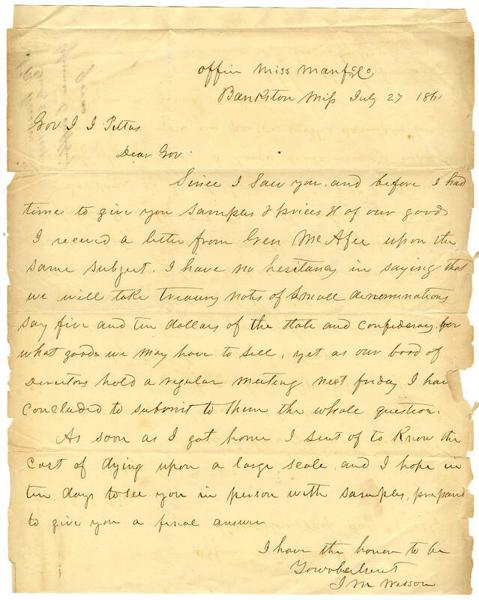 Office Miss Manf Co
Bankston Miss July 27 1861
Gov J J Pettus
Dear Gov
Since I Saw you, and before I had
time to give you Samples & prices of our goods
I received a letter from Gen McAfee upon the
Same Subject. I have no hesitancy in saying that
we will take treasury notes of Small denominations
say five and ten dollars of the State and Confederacy for
what goods we may have to sell, yet as our bord of
Directors hold a regular meeting next friday I have
Concluded to submit to them the whole question.
As soon as I got home I sent of to Know the
Cost of dying upon a large Scale and I hope in
ten days to see you in person with Samples, prepard
to give you a final answer
I have the honor to be
J M Wesson